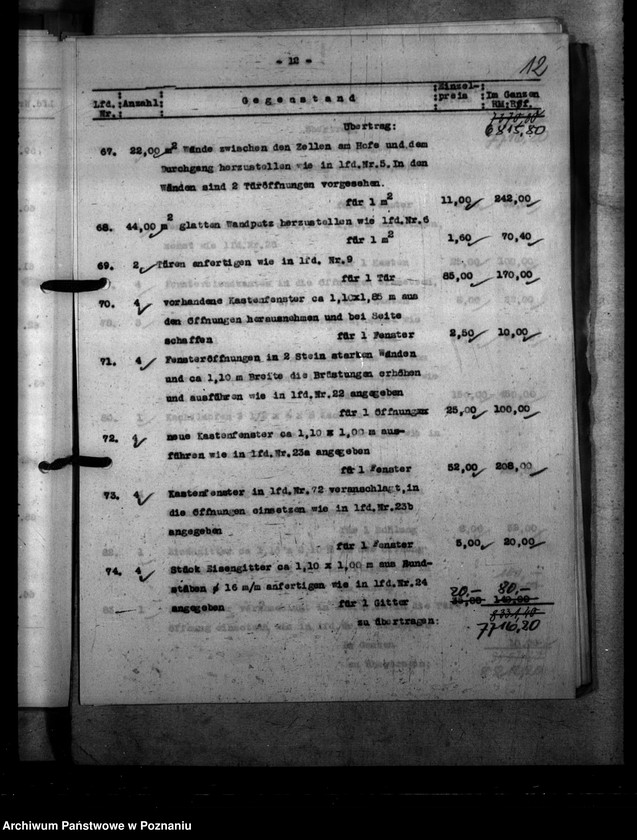 - 12 -
12
Lfd. Nr. Anzahl: Gegenstand Einzel- preis Im Ganzen RM Rpf.
Übertrag: 6815,80
67. 22,00 m² Wände zwischen den Zellen am Hofe und dem
Durchgang herzustellen wie in lfd.Nr.5. In den
Wänden sind 2 Türöffnungen vorgesehen.
für 1 m² 11,00 242,00
68. 44,00 m² glatten Wandputz herzustellen wie lfd.Nr.6
für 1 m² 1,60 70,40
69. 2 Türen anfertigen wie in lfd. Nr.9
für 1 Tür 85,00 170,00
70. 4 vorhandene Kastenfenster ca 1,10x1,85 m aus
den Öffnungen herausnehmen und bei Seite
schaffen für 1 Fenster 2,50 10,00
71. 4 Fensteröffnungen in 2 Stein starken Wänden
und ca 1,10 m Breite die Brüstungen erhöhen
und ausführen wie in lfd.Nr.22 angegeben
für 1 Öffnung 25,00 100,00
72. 4 neue Kastenfenster ca 1,10 x 1,00 m aus-
führen wie in lfd.Nr.23a angegeben
für 1 Fenster 52,00 208,00
73. 4 Kastenfenster in lfd.Nr.72 veranschlagt, in
die Öffnungen einsetzen wie in lfd.Nr.23b
angegeben
für 1 Fenster 5,00 20,00
74. 4 Stück Eisengitter ca 1,10 x 1,00 m aus Rund-
stäben ø 16 m/m anfertigen wie in lfd.Nr.24
20,- 80,-
angegeben für 1 Gitter
zu übertragen: 7716,20
Archiwum Państwowe w Poznaniu